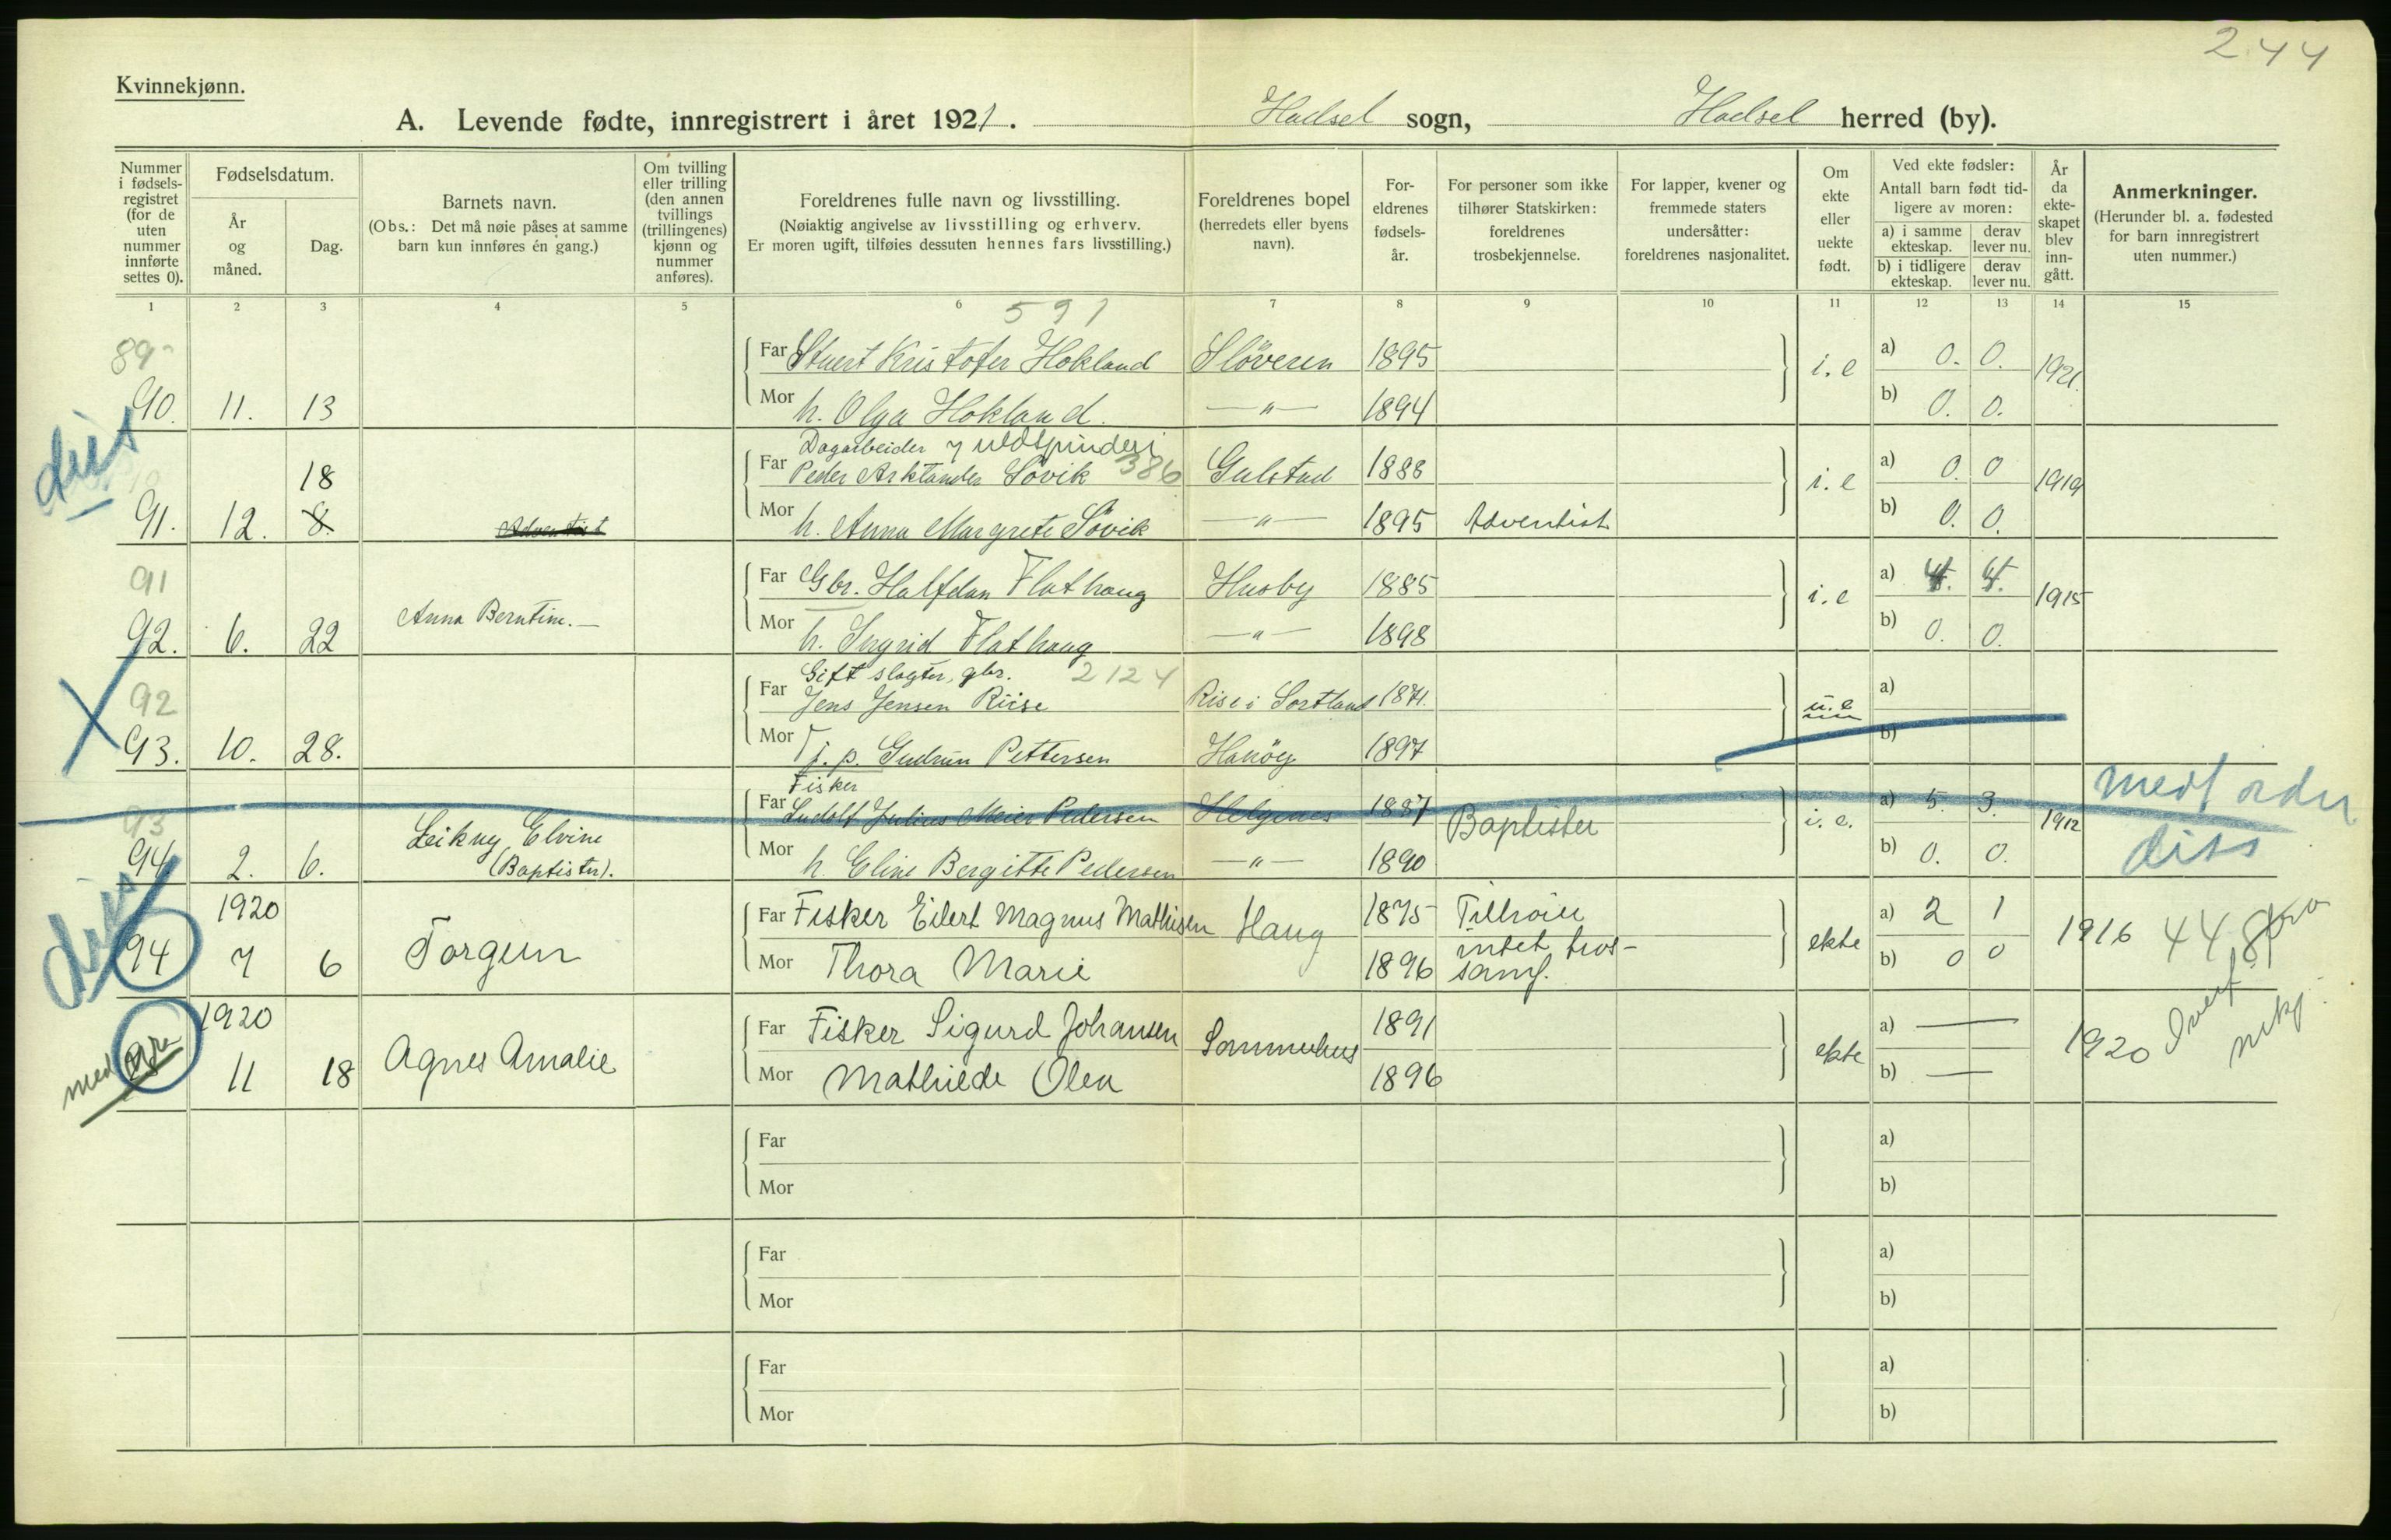 244
Kvinnekjønn.
A. Levende fødte, innregistrert i året 1921. Hadsel sogn, Hadsel herred (by).
Nummer i fødsels-registret (for de uten nummer innførte settes 0).
Fødselsdatum.
År og måned.
Dag.
Barnets navn.
(Obs.: Det må nøie påses at samme barn kun innføres én gang.)
Om tvilling eller trilling (den annen tvillings (trillingenes) kjønn og nummer anføres).
Foreldrenes fulle navn og livsstilling.
(Nøiaktig angivelse av livsstilling og erhverv.
Er moren ugift, tilføies dessuten hennes fars livsstilling.)
Foreldrenes bopel
(herredets eller byens navn).
For-eldrenes fødsels-år.
For personer som ikke tilhører Statskirken: foreldrenes trosbekjennelse.
For lapper, kvener og fremmede staters undersåtter: foreldrenes nasjonalitet.
Om ekte eller uekte født.
Ved ekte fødsler:
Antall barn født tid-ligere av moren:
a) i samme ekteskap.
derav lever nu.
b) i tidligere ekteskap.
derav lever nu.
År da ekte-skapet blev inn-gått.
Anmerkninger.
(Herunder bl. a. fødested for barn innregistrert uten nummer.)
1 2 3 4 5 6 7 8 9 10 11 12 13 14 15
591
89
Far Stuert Kristofer Hokland Slöveren 1895 i.e a) 0. 0. 1921.
90. 11. 13 Mor h. Olga Hokland. —"— 1894 b) 0. 0.
diss
Dagarbeider v uldspinderi
18 Far Peder Arktander Sövik 386 Gulstad 1888 i.e a) 0. 0 1919
91. 12. 8. Adventist Mor h. Anna Margrete Sövik —"— 1895 Adventist b) 0. 0.
91
Far Gbr. Halfdan Flathaug Husby 1885 i.e a) 4. 4. 1915
92. 6. 22 Anna Berntine.— Mor h. Ingrid Flathaug —"— 1898 b) 0. 0.
Gift slagter, gbr. 2124
92
Far Jens Jensen Riise Rise i Sortland 1871. u.e a)
93. 10. 28. Mor Tj. p. Gudrun Pettersen Hanöy 1897 b)
Fisker
93
Far Ludolf Julius Meier Pedersen Helgenes 1887 Baptister i.e. a) 5. 3. 1912 medt
94 2. 6. Leikny Elvine (Baptister). Mor h. Eline Bergitte Pedersen —"— 1890 b) 0. 0. diss
diss
1920 Far Fisker Edert Magnus Mathisen Haug 1875 Tilhører ekte a) 2 1 1916 448
94 7 6 Torgun Mor Thora Marie 1896 intet tros-samf. b) 0 0
1920 Far Fisker Sigurd Johansen Sommerhus 1891 ekte a) — 1920
med 11 18 Agnes Amalie Mor Mathilde Olea 1896 b) —
Far a)
Mor b)
Far a)
Mor b)
Far a)
Mor b)